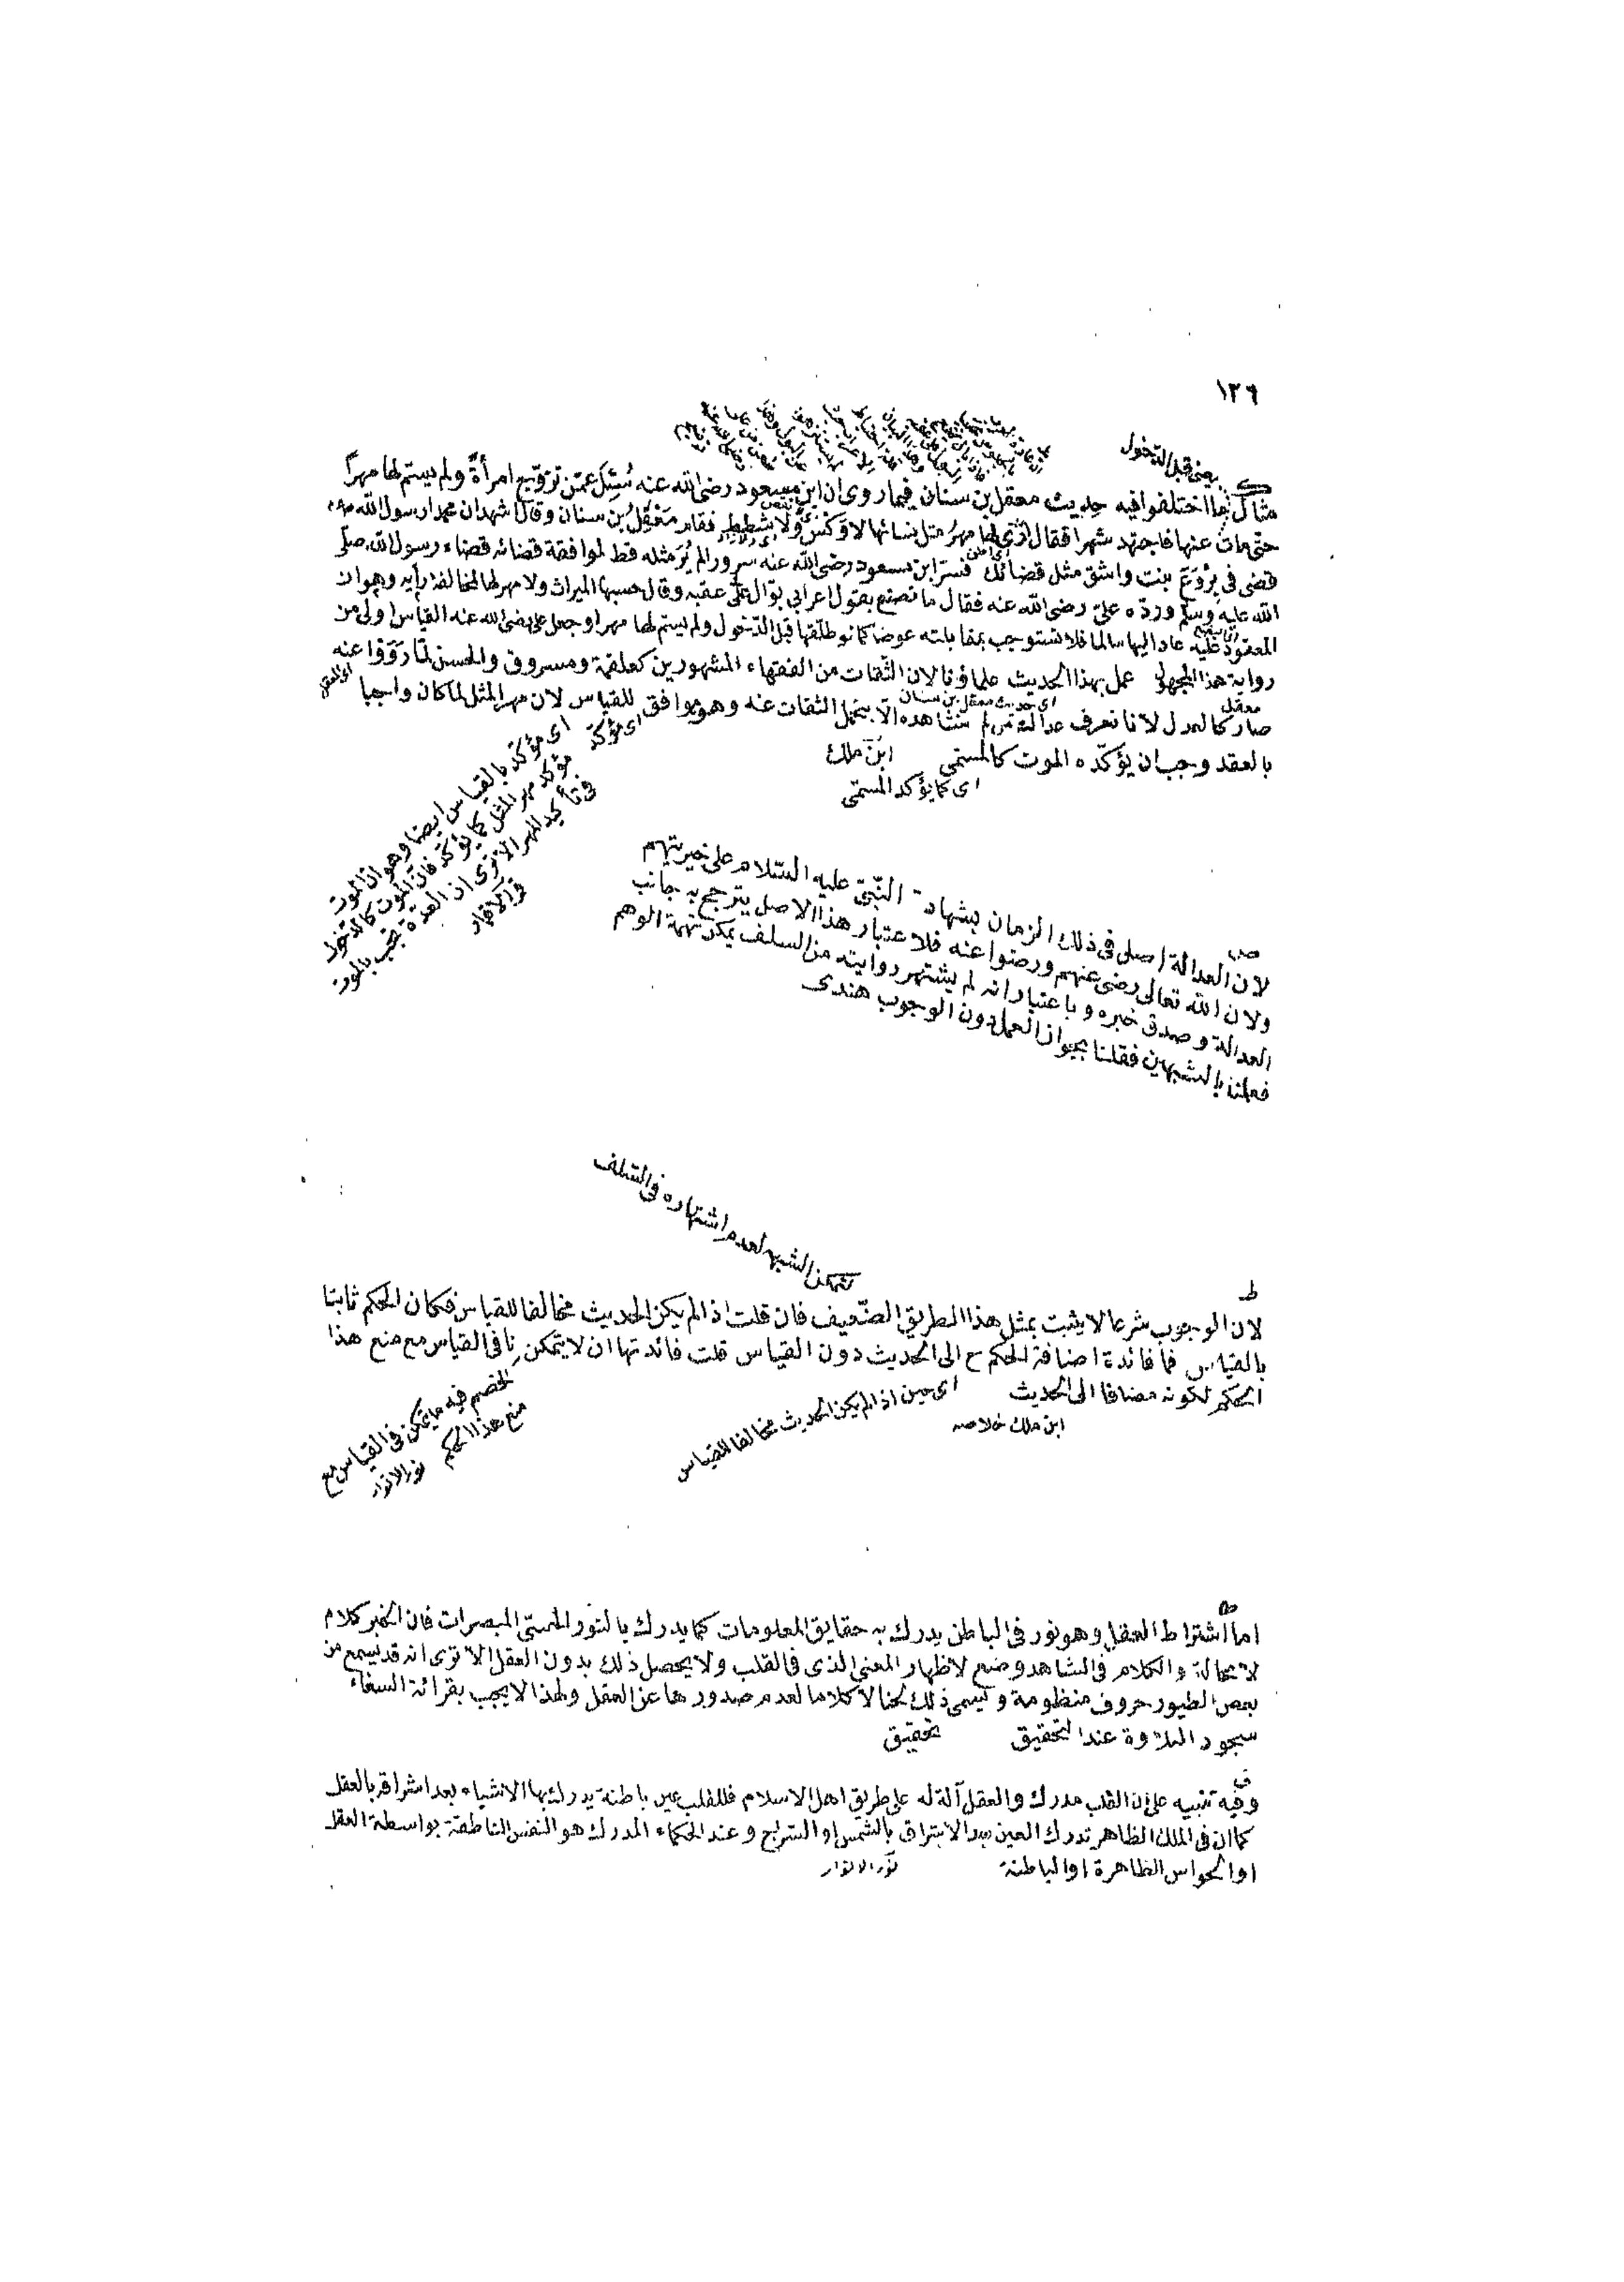 ١٢٦
يعنى قبل الدّخول
مثال ما اختلفوا فيه حديث معقل بن سنان فيما روى ان ابن مسعود رضى الله عنه سُئِلَ عمّن تزوّج امرأةً ولم يسمّ لها مهرًا
حتى مات عنها فاجتهد شهرا فقال اَرٰى لها مهرُ مثل نسائها لا وَكْسَ ولا شطط فقام مَعْقِلُ بن سنان وقال اشهد ان محمدا رسول الله
قضى فى بِرْوَعَ بنت واشق مثل قضائك فسرّ ابن مسعود رضى الله عنه سرورا لم يُرَ مثله قط لموافقة قضائه قضاء رسول الله صلّى
الله عليه وسلم وردّه علىّ رضى الله عنه فقال ما نصنع بقول اعرابى بوّال على عقبه وقال حسبها الميراث ولا مهر لها لمخالفة رأيه وهو ان
المعقود عليه عاد اليها سالما فلا تستوجب بمقابلته عوضا كما لو طلّقها قبل الدّخول ولم يسمّ لها مهرا وجعل على رضى الله عنه القياس اولى من
رواية هذا المجهول عمل بهذا الحديث علماؤنا لان الثّقات من الفقهاء المشهورين كعلقمة ومسروق والحسن لمّا رَوَوْا عنه
اى حديث معقل بن سنان
معقل
صار كالعدل لانا نعرف عدالة من لم نشاهده الا بتحمّل الثقات عنه وهو موافق للقياس لان مهر المثل لما كان واجبا
بالعقد وجب ان يؤكّده الموت كالمسمّى ابن ملك
اى كما يؤكد المسمّى
اى مؤكد
اى مؤكّد بالقياس ايضا وهو ان الموت
مؤكد مهر المثل كما يؤكد فان الموت كالدخول
فى تأكيد المهر الا ترى ان العدة تجب بالموت
لان العدالة اصل فى ذلك الزمان بشهادة النّبىّ عليه السّلام على خيريتهم
ولان الله تعالى رضى عنهم ورضوا عنه فلاعتبار هذا الاصل يترجح به جانب
العدالة وصدق خبره وباعتبار انه لم يشتهر روايته من السلف يمكن تهمة الوهم
فعملنا بالشبهين فقلنا بجواز العمل دون الوجوب هندى
تمكن الشبهة لعدم اشتهاره فى السّلف
ط
لان الوجوب شرعا لا يثبت بمثل هذا الطريق الضّعيف فان قلت اذا لم يكن الحديث مخالفا للقياس فكان الحكم ثابتا
بالقياس فما فائدة اضافة الحكم ح الى الحديث دون القياس قلت فائدتها ان لا يتمكن نافى القياس مع منع هذا
الحكم لكونه مضافا الى الحديث
ابن ملك خلاصه
اى حين اذا لم يكن الحديث مخالفا للقياس
الخصم فيه ما يتمكن فى القياس مع
منع هذا الحكم نور الانوار
اما اشتراط العقل وهو نور فى الباطن يدرك به حقايق المعلومات كما يدرك بالنور الحسّى المبصرات فان الخبر كلام
لا محالة والكلام فى الشاهد وضع لاظهار المعنى الذى فى القلب ولا يحصل ذلك بدون العقل الا ترى انه قد يسمع من
بعض الطيور حروف منظومة ويسمى ذلك لحنا لا كلاما لعدم صدورها عن العقل ولهذا لا يجب بقرائة الببغاء
سجود التلاوة عند التحقيق تحقيق
وفيه تنبيه على ان القلب مدرك والعقل آلة له على طريق اهل الاسلام فللقلب عين باطنة يدرك بها الاشياء بعد اشراقه بالعقل
كما ان فى الملك الظاهر تدرك العين بعد الاشراق بالشمس او السّراج وعند الحكماء المدرك هو النفس الناطقة بواسطة العقل
او الحواس الظاهرة او الباطنة نور الانوار